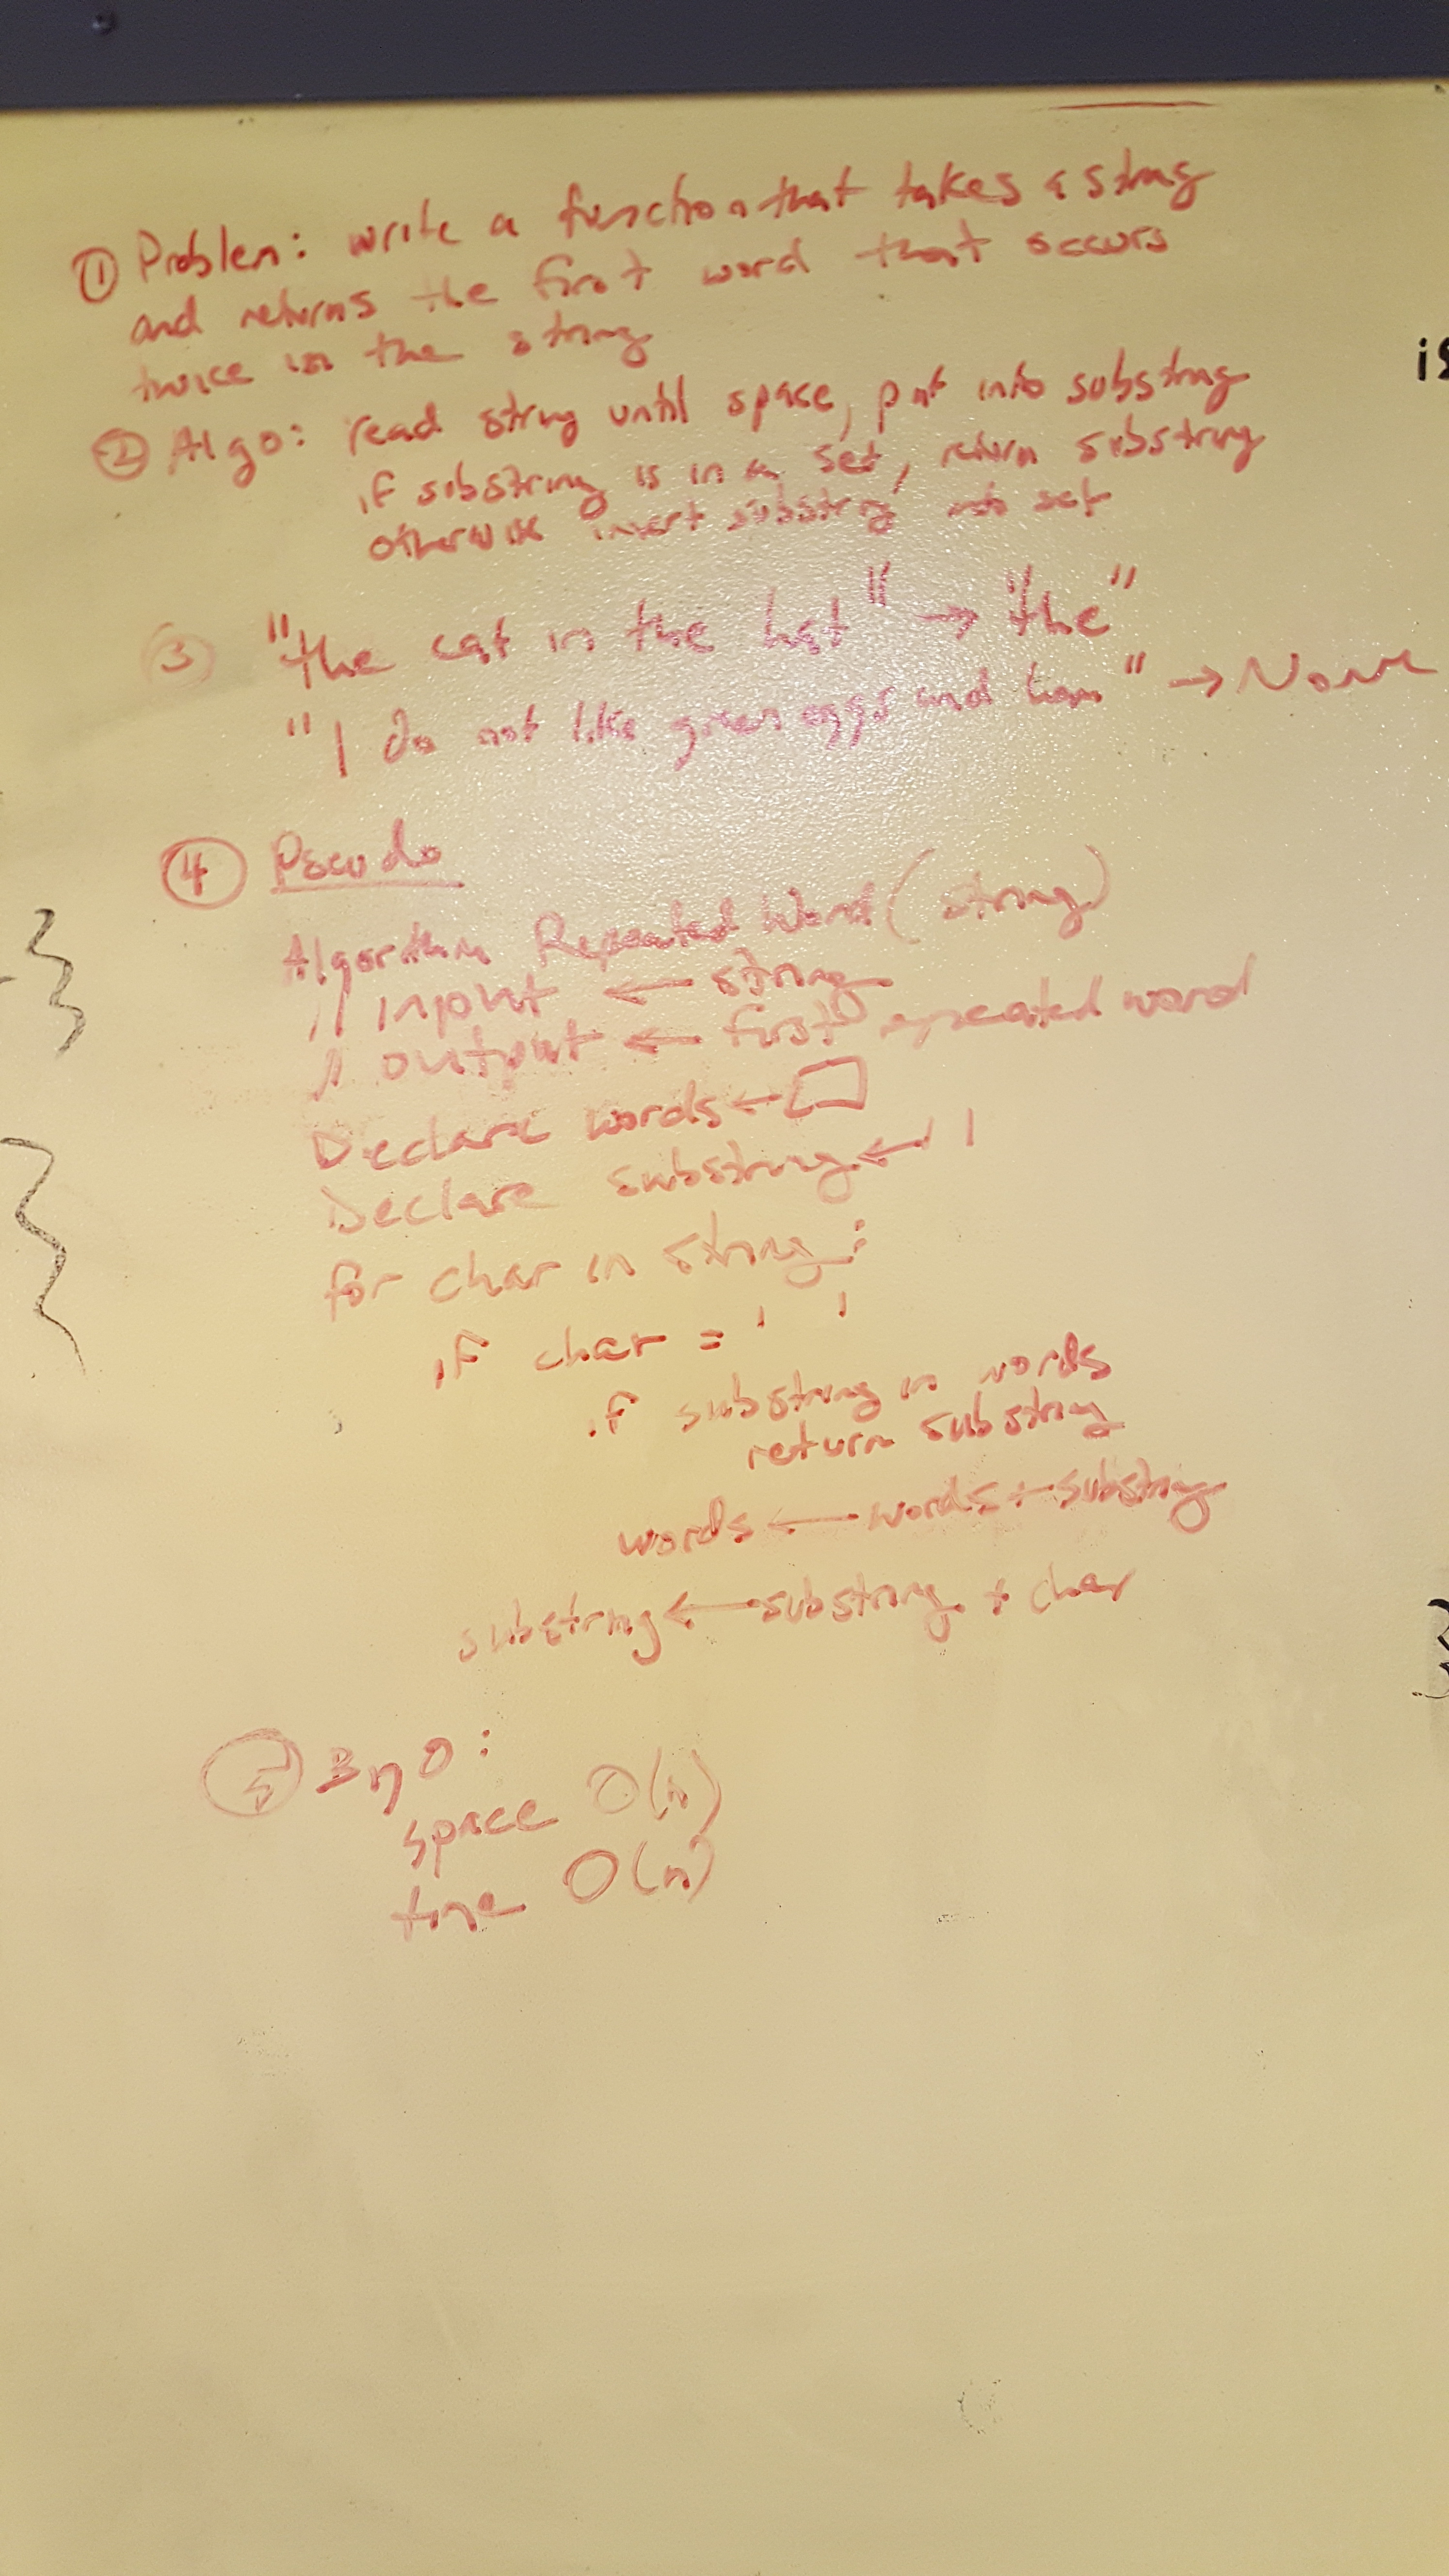 ① Problem: write a function that takes a string
and returns the first word that occurs
twice in the string
② Algo: read string until space, put into substring
if substring is in a set, return substring
otherwise insert substring into set
③ "the cat in the hat" → "the"
"I do not like green eggs and ham" → None
④ Pseudo
Algorithm Repeated Word (string)
// input ← string
// output ← first repeated word
Declare words ← []
Declare substring ← ' '
for char in string:
if char = ' '
if substring in words
return substring
words ← words + substring
substring ← substring + char
⑤ Big O:
space O(n)
time O(n)
is